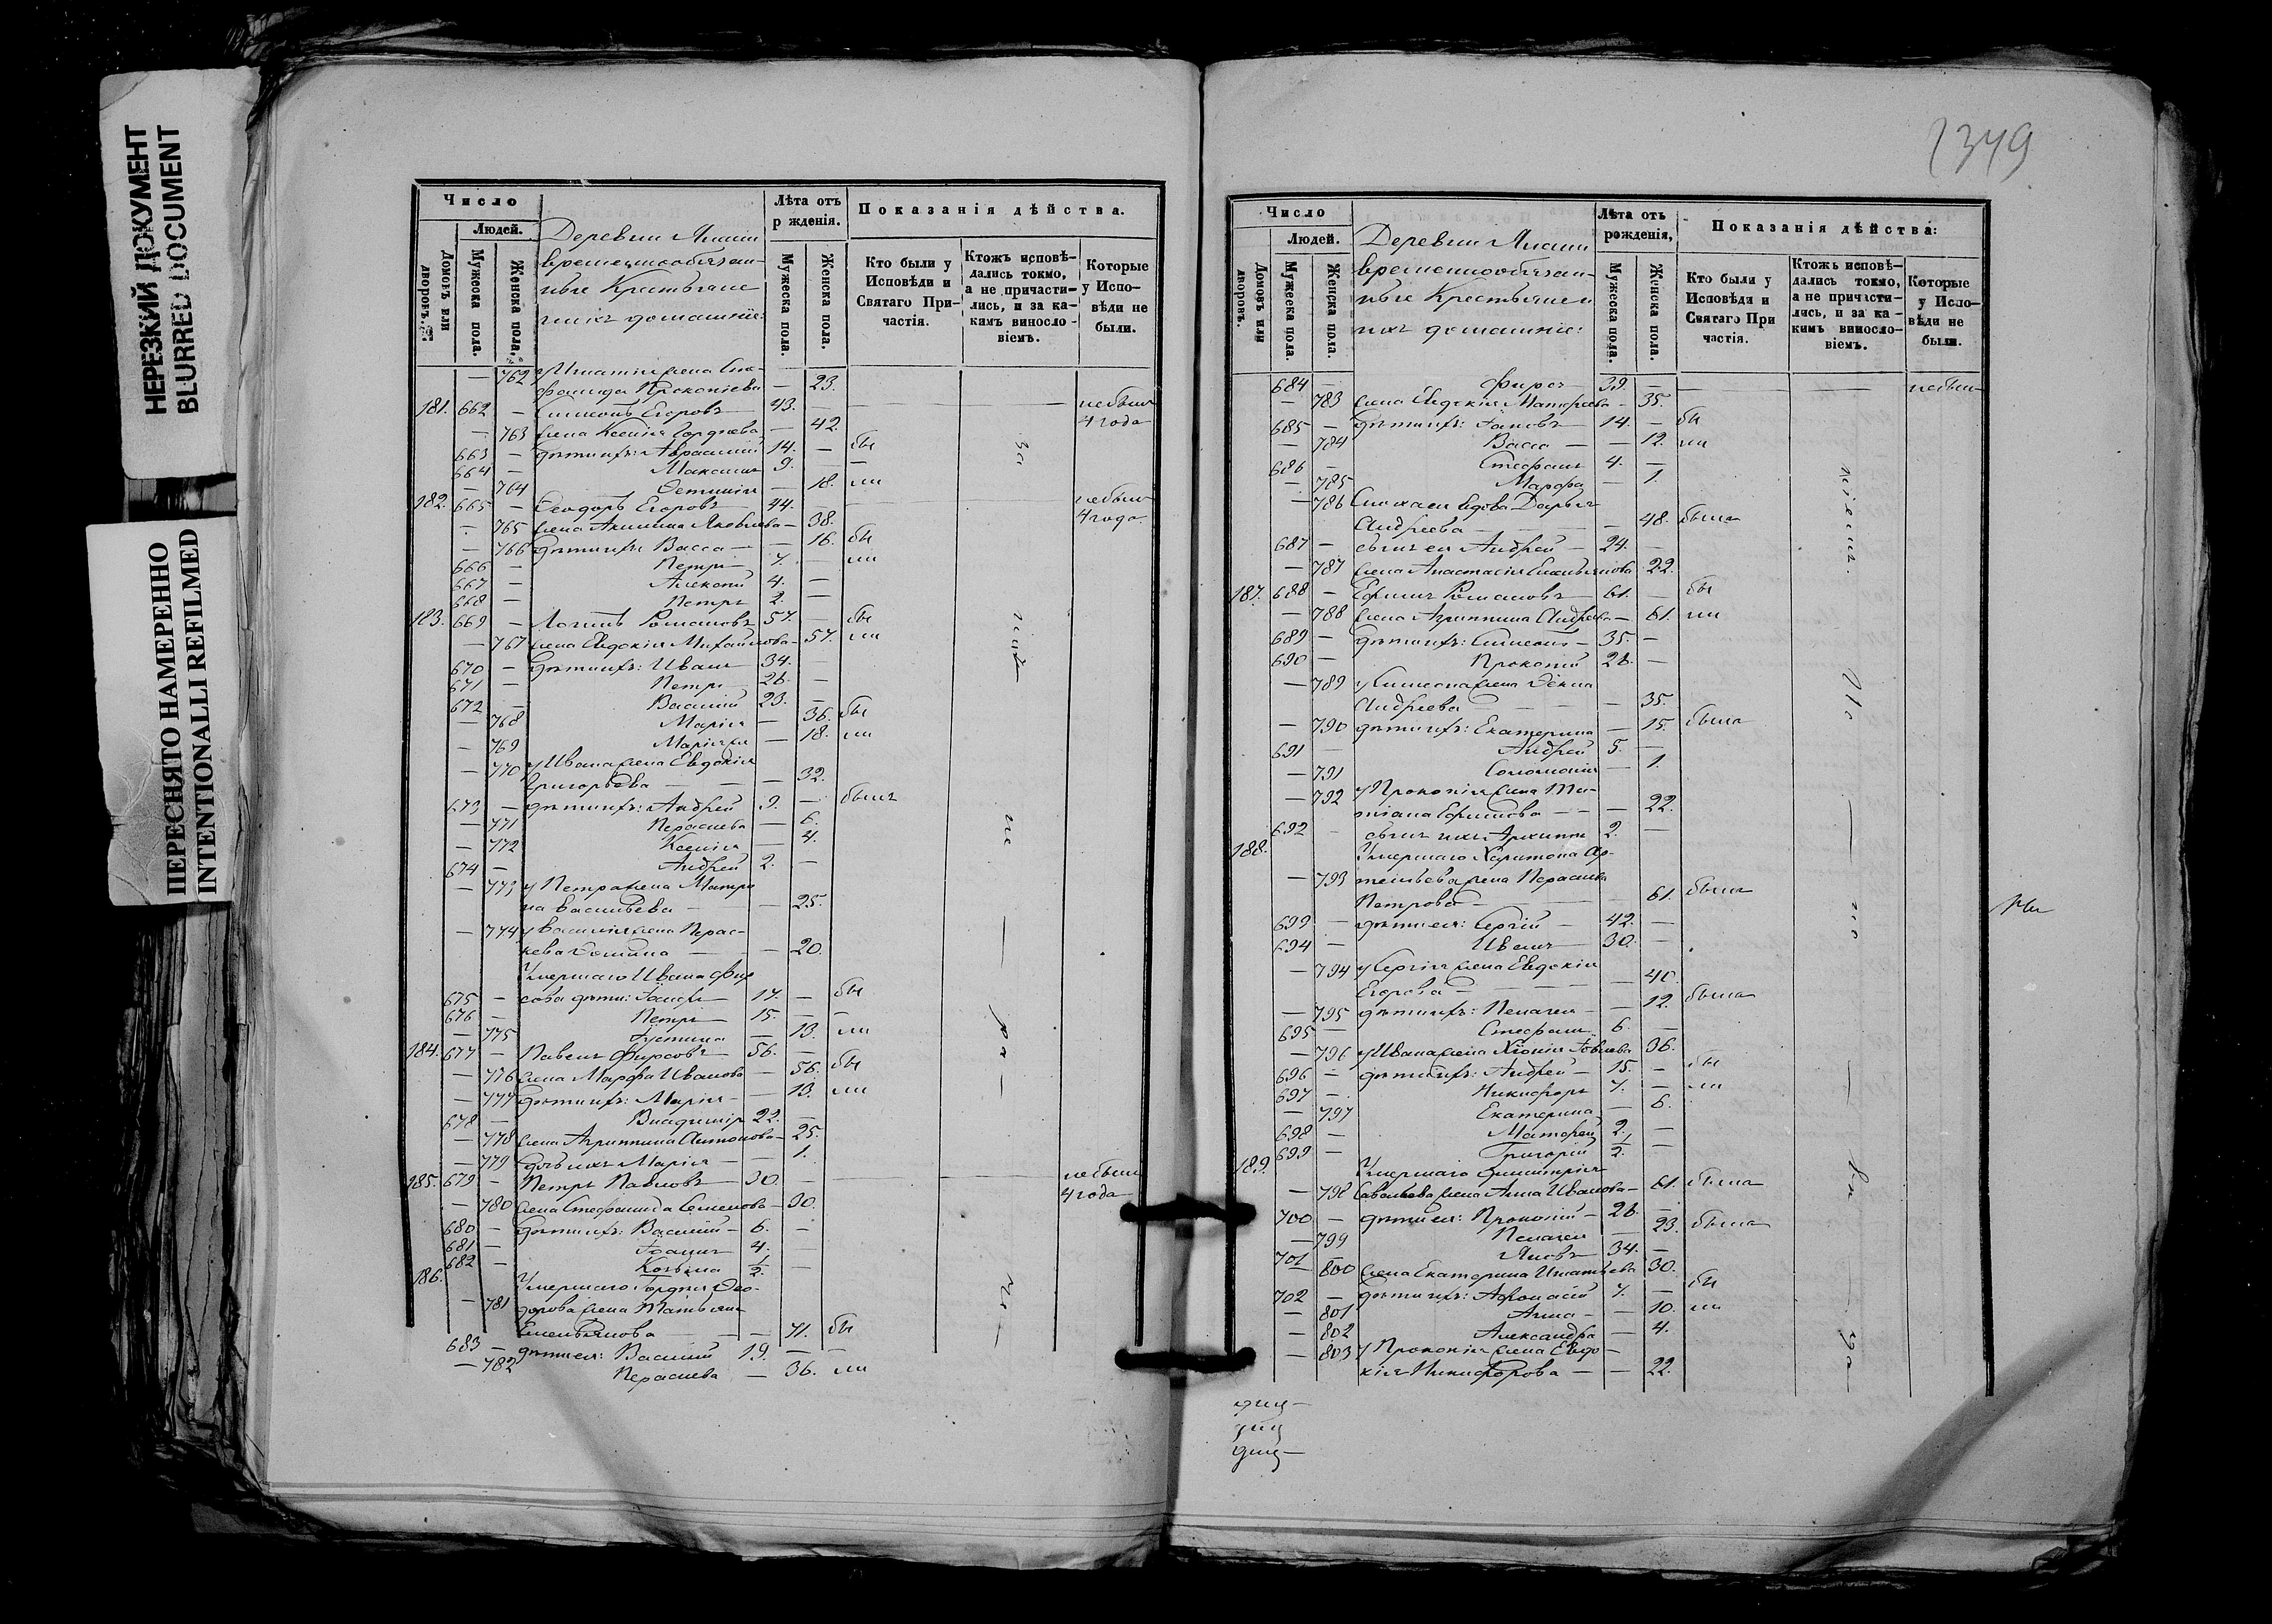 НЕРЕЗКИЙ ДОКУМЕНТ
BLURRED DOCUMENT
ПЕРЕСНЯТО НАМЕРЕННО
INTENTIONALLI REFILMED
Число
Людей.
Домовъ или дворовъ.
Мужеска пола.
Женска пола.
Деревни
временнообязан-
ные Крестьяне
ихъ домашніе:
Лѣта отъ
р жденія.
Мужеска пола.
Женска пола.
Показанія дѣйства.
Кто были у
Исповѣди и
Святаго При-
частія.
Ктожъ исповѣ-
дались токмо,
а не причасти-
лись, и за ка-
кимъ виносло-
віемъ.
Которые
у Испо-
вѣди не
были.
— 762 у Игнатія жена Сте-
фанида Прокопіева — 23.
181. 662 — Симеонъ Егоровъ 43. — небыли
— 763 жена Ксенія Гордѣева — 42. 4 года
663 — дѣти ихъ: Аврамій 14. — бы
664 — Максимъ 9. —
— 764 — 18. ли
182. 665 — Ѳеодоръ Егоровъ 44. небыли
— 765 жена Акилина Яковлева — 38. 4 года
— 766 дѣти ихъ Васса — 16. бы
666 — Петръ 7. — ли
667 — Алексѣй 4. —
668 — Петръ 2. —
183. 669 — Логинъ Романовъ 57. — бы
— 767 жена Евдокія Михайлова — 57. ли
670 — дѣти ихъ: Иванъ 34. —
671 — Петръ 26. —
672 — Василій 23. —
— 768 Марія — 36. бы
— 769 Марія — 18. ли
— 770 у Ивана жена Евдокія
Григорьева — 32.
673 — дѣти ихъ: Андрей 9. — былъ
— 771 Параскева — 6.
— 772 Ксенія — 4.
674 — Андрей 2. —
— 773 у Петра жена Матро
на Васильева — 25.
— 774 у Василія жена Парас-
кева Ѳомина — 20.
Умершаго Ивана Фир
675 — сова дѣти: Іосифъ 17. — бы
676 — Петръ 15. —
— 775 Іустина — 13. ли
184. 677 — Павелъ Фирсовъ 56. —
— 776 жена Марфа Иванова — 56. бы
— 777 дѣти ихъ: Марія — 13. ли
678 — Владимір 22. —
— 778 жена Агриппина Антонова — 25.
— 779 дочь ихъ Марія — 1.
185. 679 — Петръ Павловъ 30. — небыли
— 780 жена Стефанида Семенова — 30. 4 года
680 — дѣти ихъ: Василій 6. —
681 — Іоаннъ 4. —
682 — Козьма 1/2. —
186. Умершаго Гордѣя Ѳео-
— 781 дорова жена Татьяна
Емельянова — 71. бы
683 — дѣти ея: Василій 19. —
— 782 Параскева — 36. ли
за
не
ра
1349
Число
Людей.
Домовъ или дворовъ.
Мужеска пола.
Женска пола.
Деревни
временнообязан-
ные Крестьяне и
ихъ домашніе:
Лѣта отъ
рожденія,
Мужеска пола.
Женска пола.
Показанія дѣйства:
Кто были у
Исповѣди и
Святаго При
частія.
Ктожъ исповѣ-
дались токмо,
а не причасти-
лись, и за ка-
кимъ виносло-
віемъ.
Которые
у Испо-
вѣди не
были.
684 — Фирсъ 39. — небыли
— 783 жена Евдокія Матфеева — 35.
685 — дѣти ихъ: Іаковъ 14. — бы
— 784 Васса — 12. ли
686 — Стефанъ 4. —
— 785 Марфа — 1.
— 786 Сноха ея вдова Дарья
Андреева — 48. была
687 — сынъ ея Андрей 24. —
— 787 жена Анастасія Емельянова 22.
187. 688 — Ефимъ Романовъ 61. — бы
— 788 жена Агриппина Андреева — 61. ли
689 — дѣти ихъ: Симеонъ 35. —
690 — Прокопій 26. —
— 789 у Симеона жена Ѳекла
Андреева — 35.
— 790 дѣти ихъ: Екатерина — 15. была
691 — Андрей 5. —
— 791 Соломонія — 1.
— 792 у Прокопія жена Та-
тіана Ефимова — 22.
692 — сынъ ихъ Архипъ 2. —
188. Умершаго Харитона Ар-
— 793 темьева жена Параскева
Петрова — 61. была
693 — дѣти ея: Сергій 42. —
694 — Иванъ 30. —
— 794 у Сергія жена Евдокія
Егорова — 40.
— 795 дѣти ихъ: Пелагея — 12. была
695 — Стефанъ 6. —
— 796 у Ивана жена Хіонія Іовлева 36.
696 — дѣти ихъ: Андрей 15. — бы
697 — Никифоръ 7. — ли
— 797 Екатерина — 6.
698 — Матфей 2. —
699 — Григорій 1/2. —
189. Умершаго Димитрія
— 798 Савельева жена Анна Иванова — 61. была
700 — дѣти ея: Прокопій 26. —
— 799 Пелагея — 23. была
701 — Яковъ 34. —
— 800 жена Екатерина Игнатьева 30.
702 — дѣти ихъ: Афонасій 7. — бы
— 801 Анна — 10. ли
— 802 Александра — 4.
— 803 у Прокопія жена Евдо-
кія Никифорова — 22.